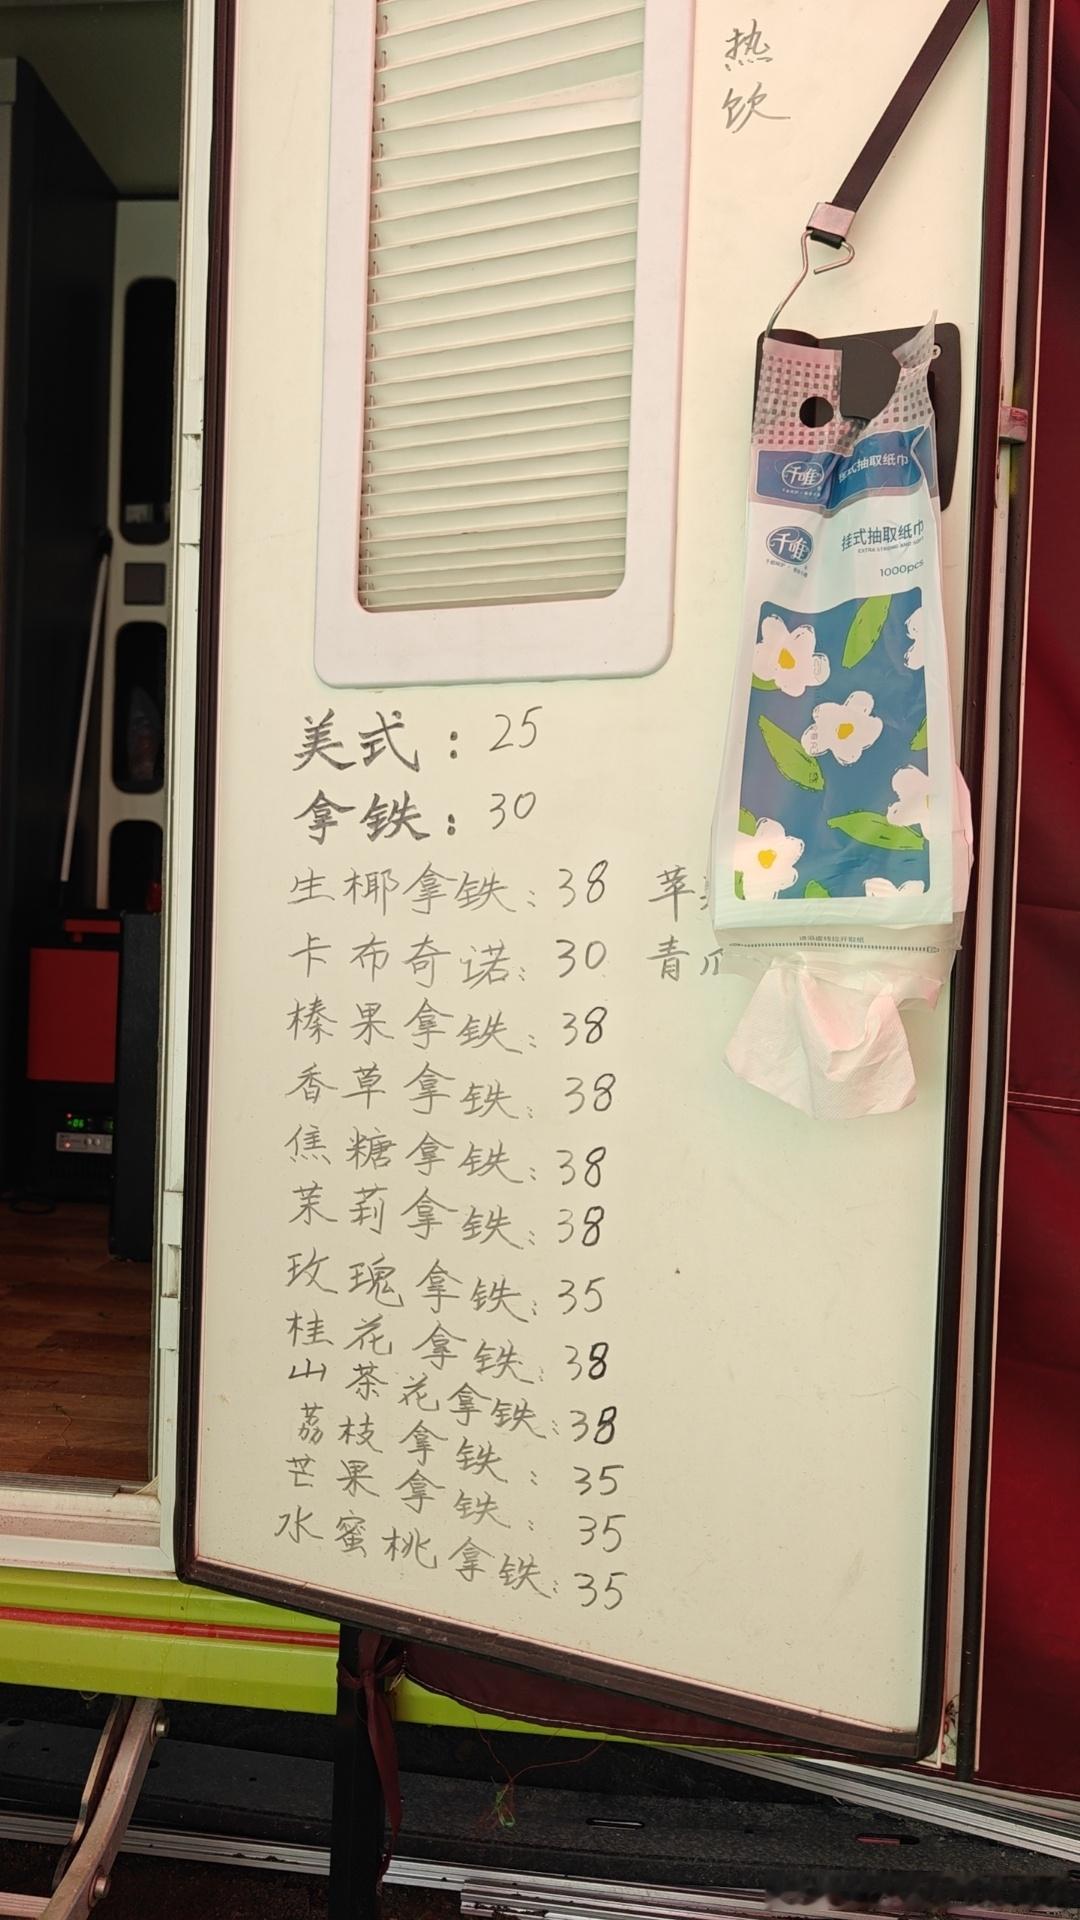 热
饮
千唯
挂式抽取纸巾
千唯
挂式抽取纸巾
EXTRA STRONG AND SOFT
1000pcs
请沿虚线拉开取纸
美式：25
拿铁：30
生椰拿铁：38
卡布奇诺：30
榛果拿铁：38
香草拿铁：38
焦糖拿铁：38
茉莉拿铁：38
玫瑰拿铁：35
桂花拿铁：38
山茶花拿铁：38
荔枝拿铁：35
芒果拿铁：35
水蜜桃拿铁：35
苹
青